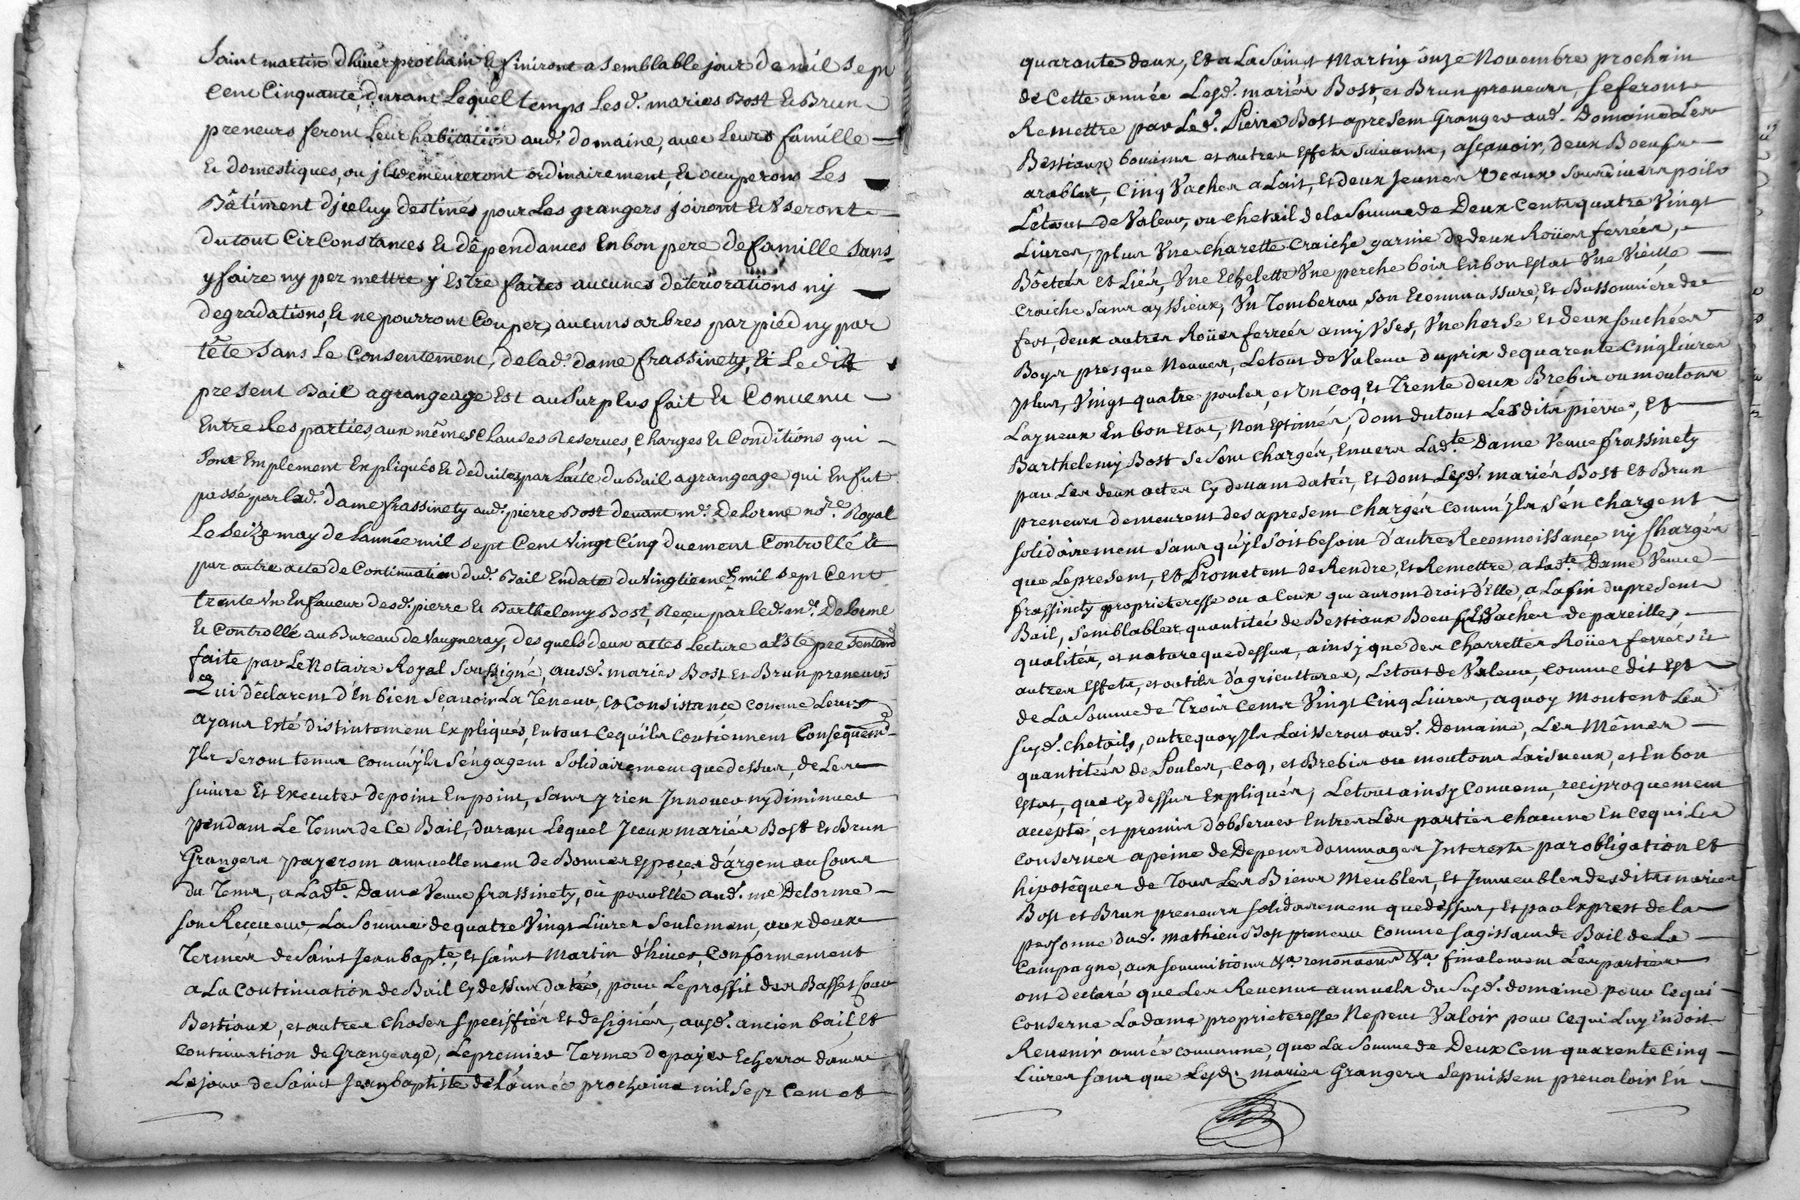 Saint martin d'hiver prochain & finiront a semblable jour de mil sept
cent Cinquante, durant Lequel temps Lesd. mariés Bost & Brun
preneurs feront Leur habitation aud. domaine, avec Leurs famille
& domestiques, ou jls demeureront ordinairement, & occuperons Les
Bâtiment d'jceluy destinés pour Les grangers joiront & Vseront
du tout CirConstances & dépendances En bon pere de famille sans
y faire ny permettre y Estre faites aucunes déteriorations ny
degradations, & ne pourront Couper, aucuns arbres par pied ny par
tête sans Le Consentement, de lad. dame frassinety, & Le dit
present Bail agrangeage Est au surplus fait & Convenu
Entre les parties, aux mêmes Clauses Reserves, Charges & Conditions qui
sont Emplement Expliqués & déduites par L'acte du Bail agrangeage qui En fut
passé par lad. dame frassinety aud. pierre Bost devant me. Delorme nore. Royal
Le seize may de L'année mil sept Cent Vingt Cinq duement Controllé &
par autre acte de Continuation dud. Bail En date du Vingtieme mil sept Cent
trente Vn En faveur desd. pierre & Barthelemy Bost, Reçu par led. me. Delorme
& Controllé au Bureau de Vaugneray, des quels deux actes Lecture a Esté presentent
faite par Le Notaire Royal soussigné, ausd. mariés Bost et Brun preneurs
Qui déclarent d'En bien scavoir La Teneur, et Consistance comme Leurs
ayant Esté distintement Expliqués, En tout Ce qu'ils Contiennent Consequemt.
Jls seront tenus comm'jls s'engagent solidairement que dessus, de Les
suivre Et Executer de point En point, sans y rien Jnnover ny diminuer
pendant Le Tems de Ce Bail, durant Lequel Jceux mariés Bost Et Brun
Grangers payeront annuellement de Bonnes Especes d'argent au Cours
du Tems, a Ladte. Dame Veuve frassinety, ou pour Elle aud. me Delorme
son Receveur, La Somme de quatre Vingt Livres seulement, aux deux
Termes de Saint Jean bapte, Et saint Martin d'hiver, Conformement
a La Continuation de Bail Cy dessus daté, pour Le proffit des Basses Cour
Bestiaux, et autres Choses specifiés Et designés, ausd. ancien bail, Et
Continuation de Grangeage, Le premier Terme de payer Echerra dans
Le jour de Saint Jean baptiste de L'année prochaine mil sept Cent et
quarante deux, Et a La Saint Martin onze Novembre prochain
de Cette année Lesd. mariés Bost, et Brun preneurs, se feront
Remettre par Led. Pierre Bost apresent Granger aud. Domaine Les
Bestiaux bovins et autres Effets suivants, asçavoir, deux Boeufs
arables, Cinq Vaches a Lait, Et deux jeunes Veaux sous divers poils
Le tout de Valeur, ou chetail de la Somme de Deux Cents quatre Vingt
Livres, plus Vne charette Craiche garnie de deux Roües ferrées,
Bôetées Et Liés, Vne Echelette Vne perche bois En bon Estat Vne Vieille
Craiche sans ayssieux, Vn Tombereau son Econnassure, Et Bussonniére de
fert, deux autres Roües ferrées a my Vses, Vne herse Et deux souchées
Boys presque Neuves, Le tout de Valeur du prix de quarente Cinq Livres
plus, Vingt quatre poules, et Vn Coq, Et Trente deux Brebis ou moutons
Layneux En bon Etat, Non Estimés, dont du tout Lesdits pierre, Et
Barthelemy Bost se sont chargés, Envers Ladte. Dame Veuve frassinety
par Les deux actes Cy devant datés, Et dont Lesd. mariés Bost Et Brun
preneurs demeurent des apresent Chargés Comm'jls s'én Chargent
solidairement sans qu'jl soit besoin d'autre Reconnoissance ny Chargés
que Le present, Et Promettent de Rendre, Et Remettre, a Ladte. Dame Veuve
frassinety proprieteresse ou a Ceux qui auront droit d'Elle, a La fin du present
Bail, semblables quantités de Bestiaux Boeufs Et Vaches de pareilles
qualités, et nature que dessus, ainsy que des Charrettes Roües ferrées Et
autres Effets, et outils d'agricultures, Le tout de Valeur, comme dit Est
de La Somme de Trois Cents Vingt Cinq Livres, a quoy montent Les
susd. chetails, outre quoy jls Laisseront aud. Domaine, Les Mêmes
quantités de Poules, Coq, et Brebis ou moutons Laisneux, et En bon
Estat, que Cy dessus Expliqués, Le tout ainsy Convenu, reciproquement
accepté, et promis d'observer Entre Les parties chacune En Ce qui Les
Conserner a peine de Depens dommages Interests par obligation Et
hipotêques de Tous Les Biens Meubles, Et Jmmeubles desdits mariés
Bost et Brun preneurs solidairement que dessus, Et par Exprest de la
personne dud. mathieu Bost preneur Comme s'agissant de Bail de La
Campagne, aux soumitions &a. renonons &a. finalement Les parties
ont declaré que Les Revenus annuels du susd. domaine pour Ce qui
Conserne La dame proprieteresse Ne peut Valoir pour Ce qui Luy En doit
Revenir année commune, que La Somme de Deux Cent quarente Cinq
Livres sans que Lesd. mariés Grangers se puissent prevaloir En